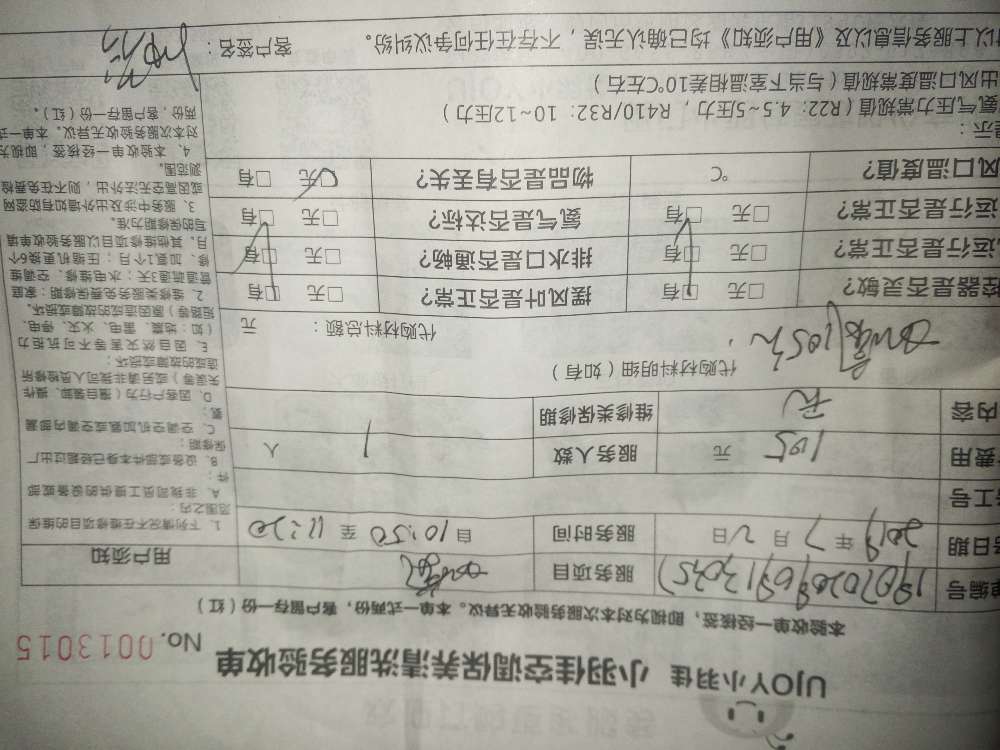 UJOY小羽佳 小羽佳空调保养清洗服务验收单
No. 0013015
本验收单一经核签，即视为对本次服务验收无异议。本单一式两份，客户留存一份（红）
编号
服务项目
用户须知
日期 2019 年 7 月 2 日
服务时间 自 10:50 至 11:20
工号
费用 105 元
服务人数 1 人
内容 无
维修类保修期
代购材料明细（如有）
105元
代购材料总额： 元
控器是否灵敏? □无 □有
摆风叶是否正常? □无 □有
运行是否正常? □无 □有
排水口是否通畅? □无 □有
运行是否正常? □无 □有
氨气是否达标? □无 □有
风口温度值? ℃
物品是否有丢失? □无 □有
提示：
氨气压力常规值（R22：4.5~5压力，R410/R32：10~12压力）
出风口温度常规值（与当下室温相差10℃左右）
以上服务信息以及《用户须知》均已确认无误，不存在任何争议纠纷。 客户签名：
1、下列情况不在维修项目的维保
范围之内：
A、非我司员工提供的设备或部
件；
B、设备或部件本身已经超过出厂
保修期；
C、空调空机加氨或空调内部漏
氨；
D、因客户行为（擅自装卸、操作
失误等）或另请非我司人员检修所
造成的故障或损坏；
E、因自然灾害等不可抗拒力
（如：地震、雷电、火灾、停电、
短路等）原因造成的故障或损坏。
2、维修类服务免费保修期：家庭
管道疏通3天；水电维修、空调维
修、加氨1个月；压缩机更换6个
月。其他维修项目以服务验收单填
写的保修期为准。
3、服务中涉及出外墙如有防盗网
或因高空无法外出，则不在免费检
测范围。
4、本验收单一经核签，即视为
对本次服务验收无异议。本单一式
两份，客户留存一份（红）。